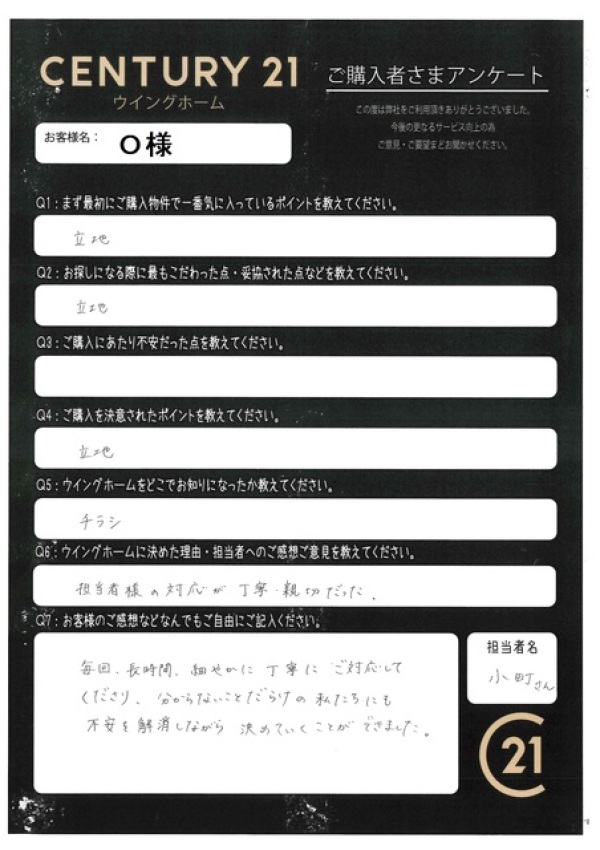 CENTURY 21
ウイングホーム
ご購入者さまアンケート
この度は弊社をご利用頂きありがとうございました。
今後の更なるサービス向上の為
ご意見・ご要望まどお聞かせください。
お客様名：
O様
Q1：まず最初にご購入物件で一番気に入っているポイントを教えてください。
立地
Q2：お探しになる際に最もこだわった点・妥協された点などを教えてください。
立地
Q3：ご購入にあたり不安だった点を教えてください。
Q4：ご購入を決意されたポイントを教えてください。
立地
Q5：ウイングホームをどこでお知りになったか教えてください。
チラシ
Q6：ウイングホームに決めた理由・担当者へのご感想ご意見を教えてください。
担当者様の対応が丁寧・親切だった。
Q7：お客様のご感想などなんでもご自由にご記入ください。
毎回、長時間、細やかに丁寧にご対応して
くださり、分からないことだらけの私たちにも
不安を解消しながら決めていくことができました。
担当者名
小町さん
21